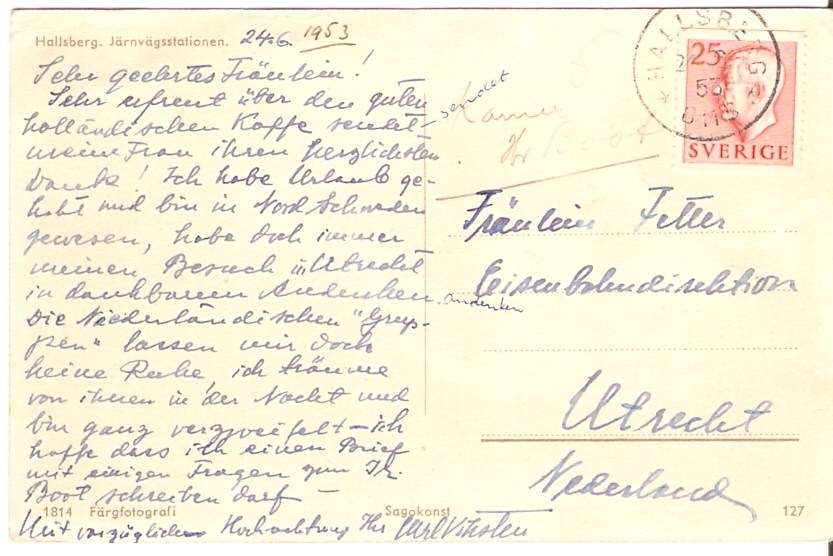 Hallsberg. Järnvägsstationen. 24.6. 1953
Sehr geehrtes Fräulein!
Sehr erfreut über den guten
holländischen Kaffe sendet
meine Frau ihren herzlichsten
Dank! Ich habe Urlaub ge-
habt und bin in Nord Schweden
gewesen, habe doch immer
meinen Besuch in Utrecht
in dankbarem Andenken.
Die Niederländischen "Grup-
pen" lassen mir doch
keine Ruhe, ich träume
von ihnen in der Nacht und
bin ganz verzweifelt – ich
hoffe dass ich einen Brief
mit einigen Fragen zum
Boot schreiben darf –
Mit vorzüglicher Hochachtung Ihr Carl
sendet
andenken
5
Boot
HALLSBERG
53
25
SVERIGE
Fräulein Fetter
Eisenbahndirektion
Utrecht
Nederland
1814 Färgfotografi Sagokonst 127